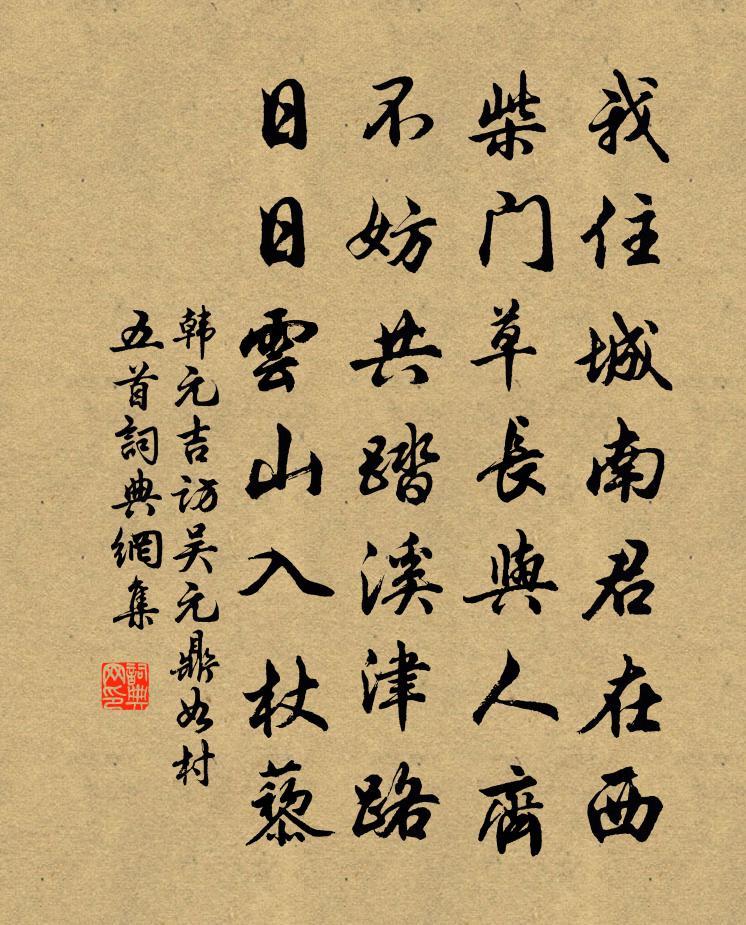 我住城南君在西
柴門草長與人齊
不妨共踏溪津路
日日雲山入杖藜
韩元吉访吴元鼎如村
五首詞典網集
詞典网印